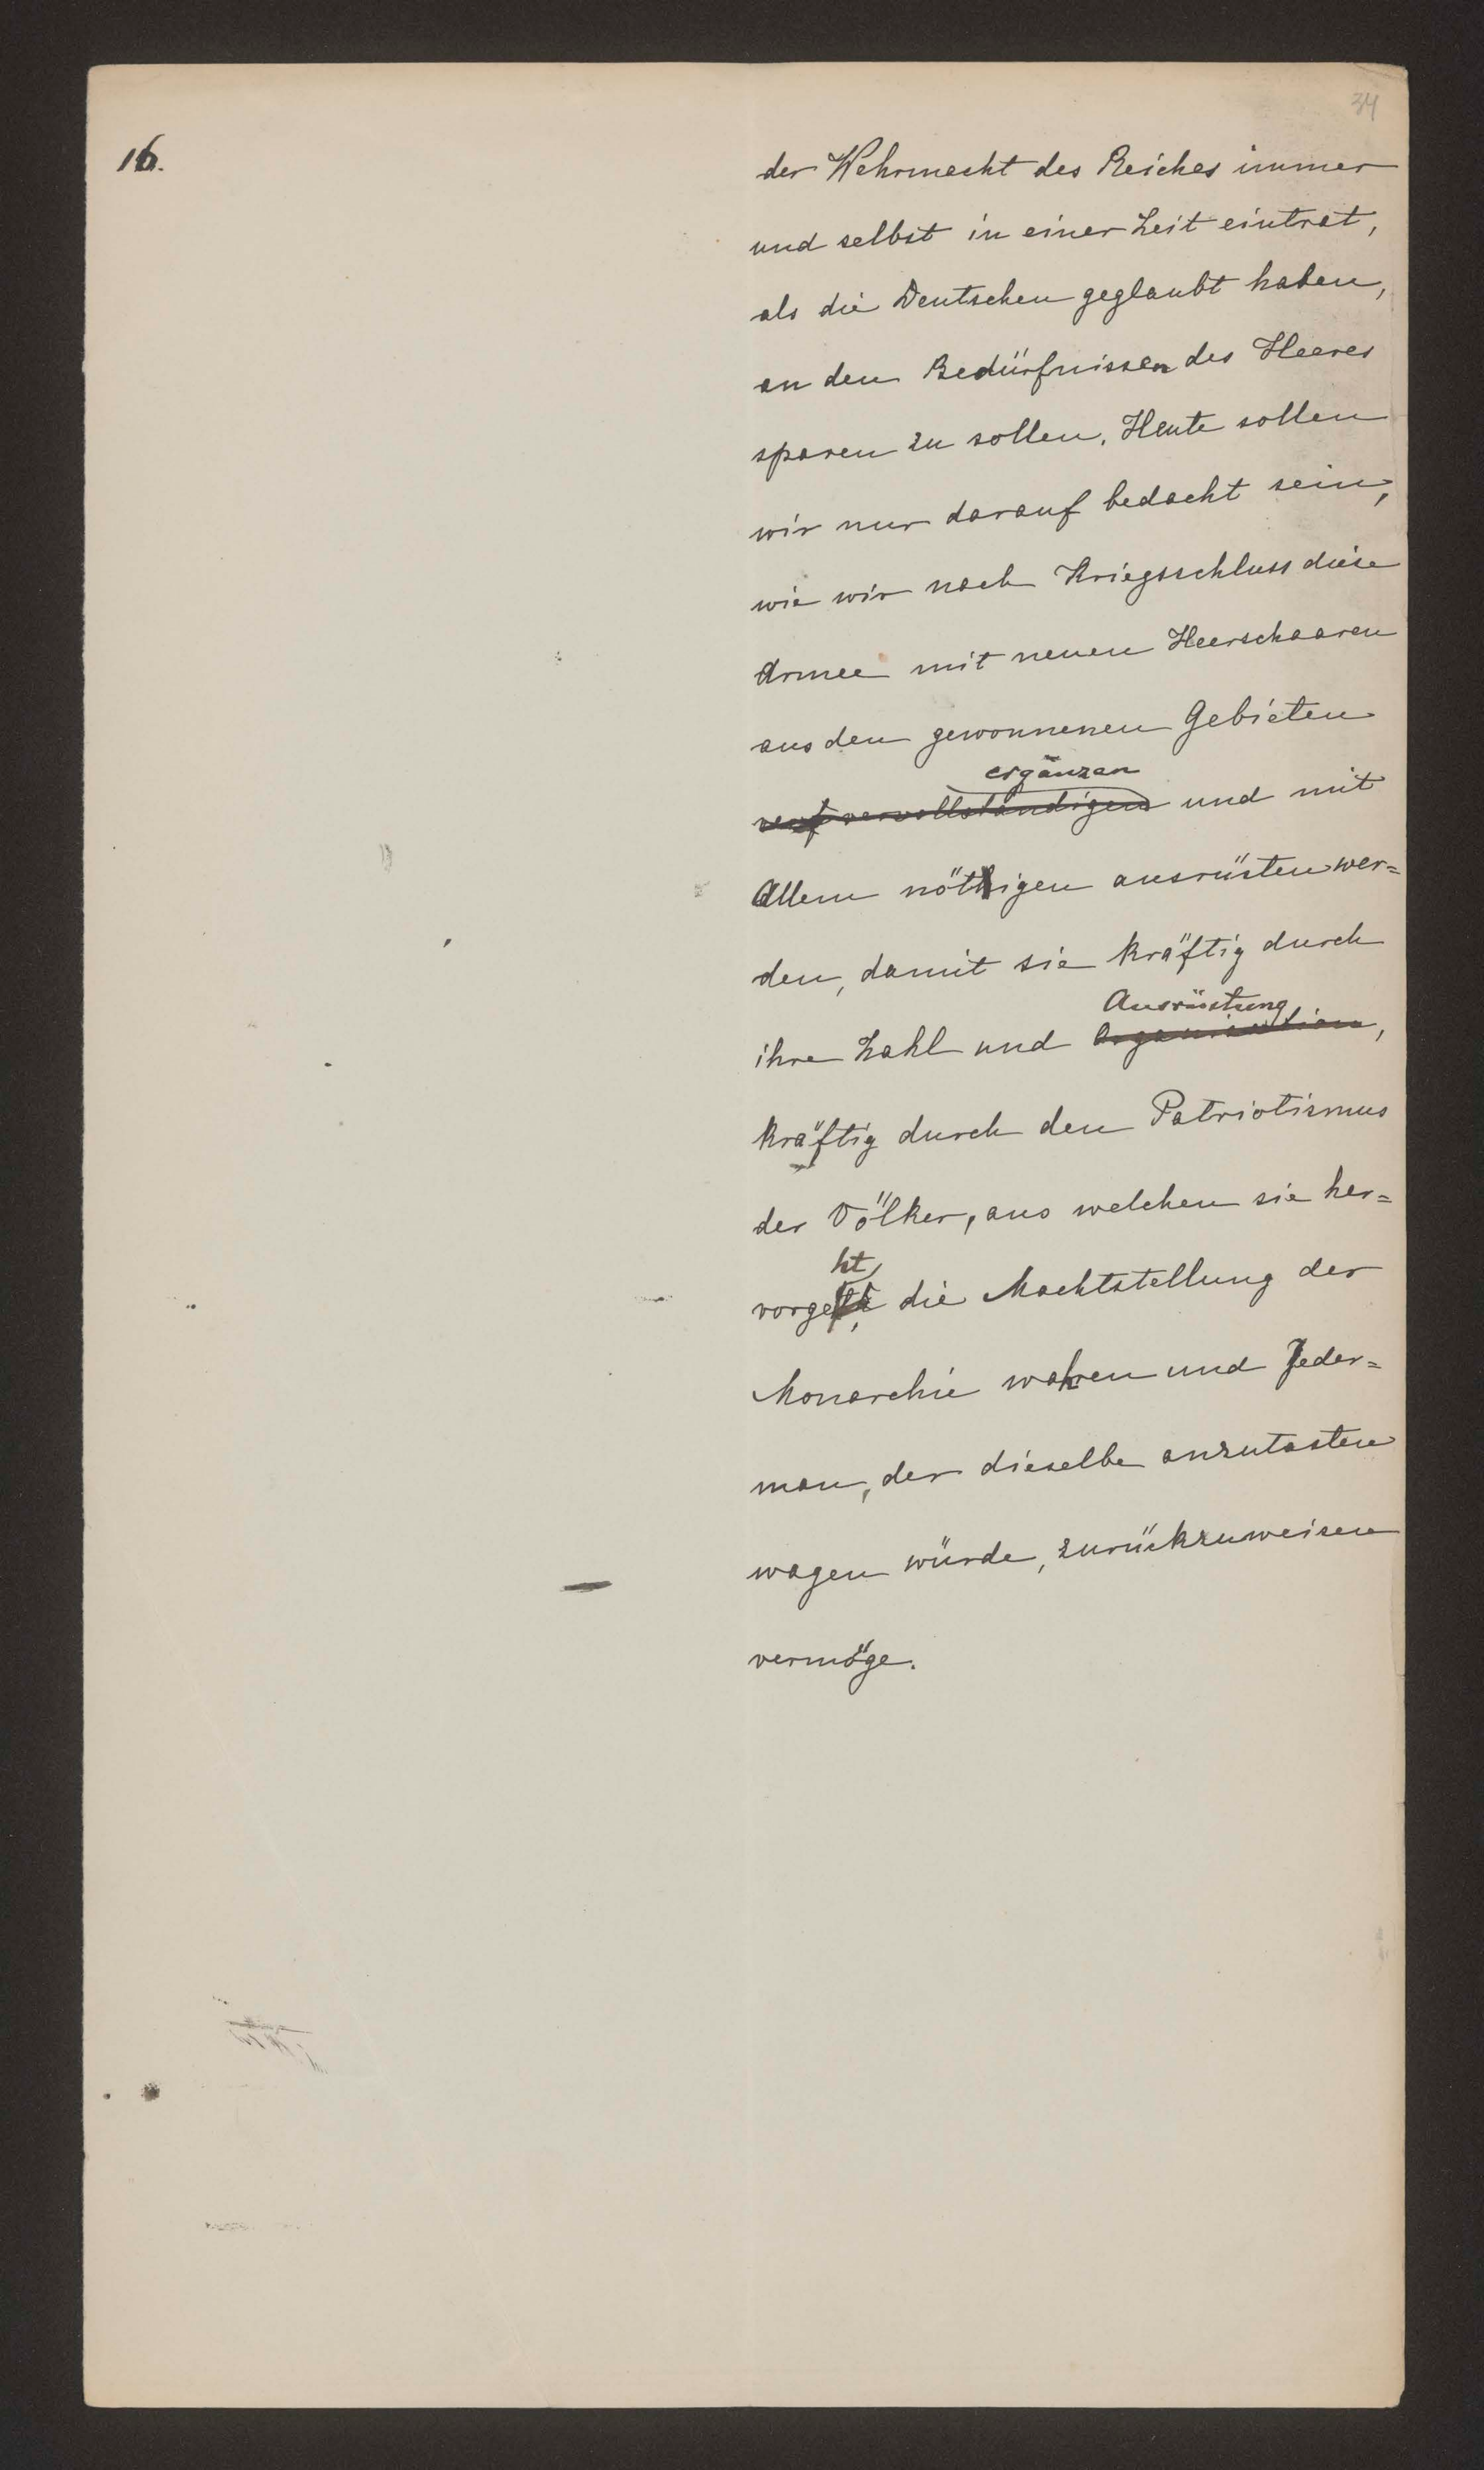 34
16.
der Wehrmacht des Reiches immer
und selbst in einer Zeit eintrat,
als die Deutschen geglaubt haben,
an den Bedürfnissen des Heeres
sparen zu sollen. Heute sollen
wir nur darauf bedacht sein,
wie wir nach Kriegsschluss diese
Armee mit neuen Heerschaaren
aus den gewonnenen Gebieten
ergänzen
vervollständigen und mit
Allem nöthigen ausrüsten wer=
den, damit sie kräftig durch
Ausrüstung
ihre Zahl und Organisation,
kräftig durch den Patriotismus
der Völker, aus welchen sie her=
ht
vorge die Machtstellung der
Monarchie wahren und Jeder=
man, der dieselbe anzutasten
wagen würde, zurückzuweisen
vermöge.